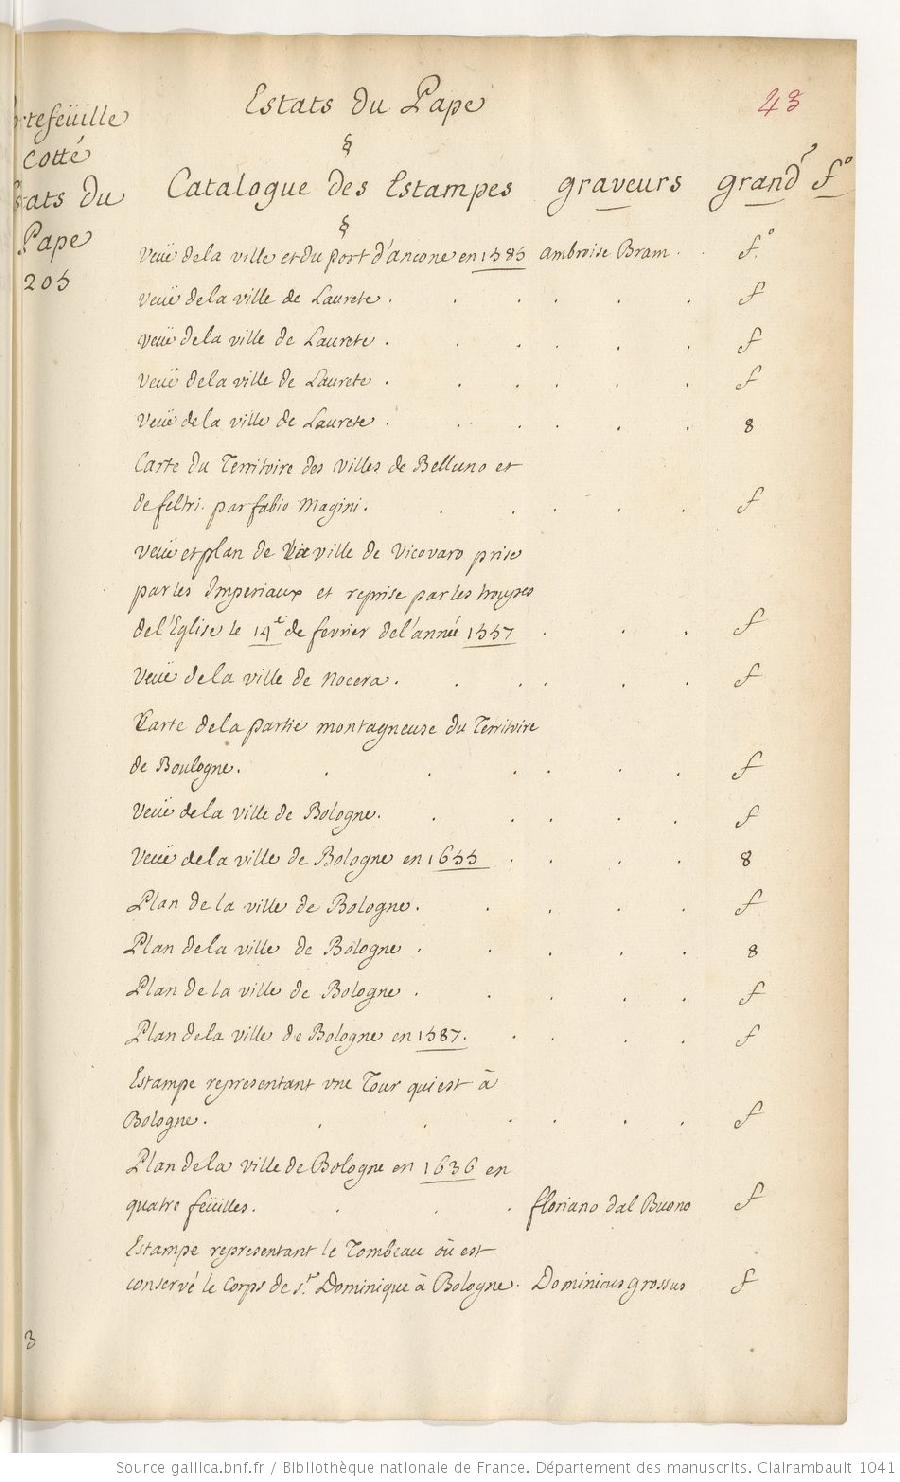 Estats du Pape
43
rtefeüille
Cotté
tats du
Pape
205
§
Catalogue des Estampes graveurs grandr f°
§
Veuë de la ville et du port d'ancone en 1585 ambroise Bram. f.°
veuë de la ville de Laurete. f
veuë de la ville de Laurete. f
Veuë de la ville de Laurete. f
Veuë de la ville de Laurete. 8
Carte du Territoire des villes de Belluno et
de feltri. par fabio Magini. f
veuë et plan de la ville de vicovaro prise
par les Imperiaux et reprise par les trouppes
de l'Eglise le 14e de fevrier de l'année 1557. f
Veuë de la ville de Nocera. f
Carte de la partie montagneuse du Territoire
de Boulogne. f
Veuë de la ville de Bologne. f
Veuë de la ville de Bologne en 1655. 8
Plan de la ville de Bologne. f
Plan de la ville de Bologne. 8
Plan de la ville de Bologne. f
Plan de la ville de Bologne en 1587. f
Estampe representant vne Tour qui est à
Bologne. f
Plan de la ville de Bologne en 1636 en
quatre feüilles. floriano dal Buono f
Estampe representant le Tombeau où est
conservé le Corps de St. Dominique à Bologne. Dominicus grossus f
3
Source gallica.bnf.fr / Bibliothèque nationale de France. Département des manuscrits. Clairambault 1041